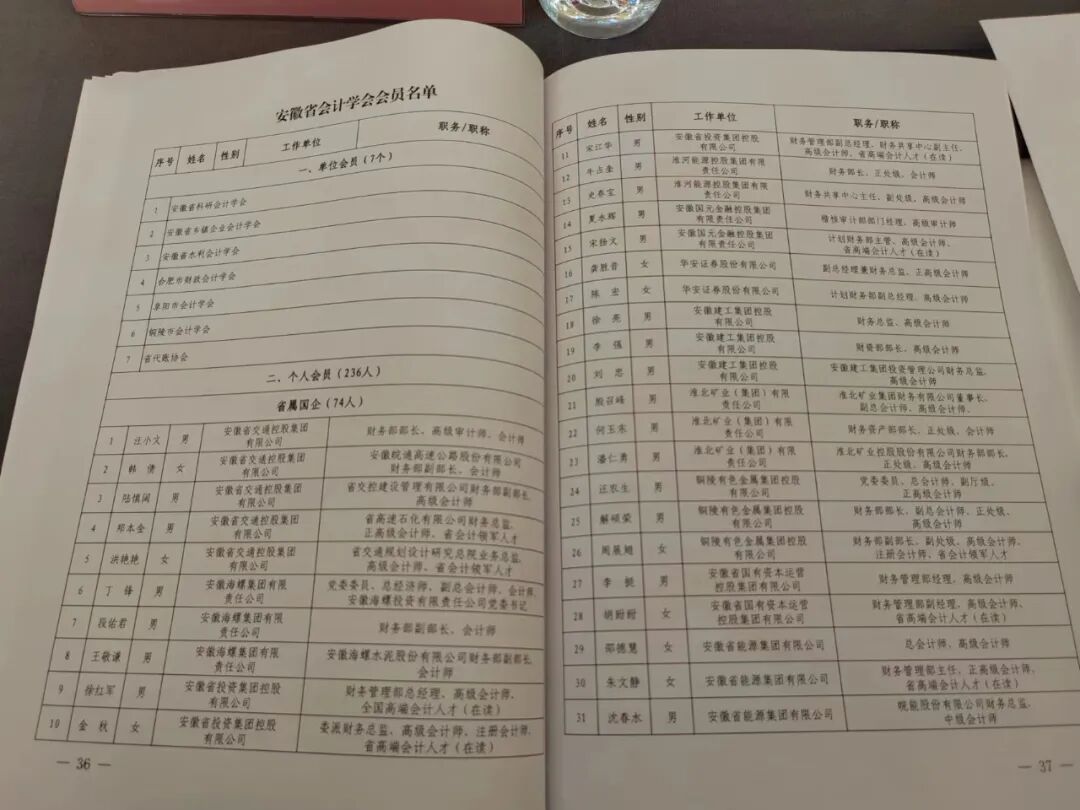 安徽省会计学会会员名单
序号 姓名 性别 工作单位 职务/职称
一、单位会员（7个）
1 安徽省科研会计学会
2 安徽省乡镇企业会计学会
3 安徽省水利会计学会
4 合肥市财政会计学会
5 阜阳市会计学会
6 铜陵市会计学会
7 省代账协会
二、个人会员（236人）
省属国企（74人）
1 汪小文 男 安徽省交通控股集团 财务部部长、高级审计师、会计师
有限公司
2 韩倩 女 安徽省交通控股集团 安徽皖通高速公路股份有限公司
有限公司 财务部副部长、会计师
3 陆慎阔 男 安徽省交通控股集团 省交控建设管理有限公司财务部副部长、
有限公司 高级会计师
4 郑本全 男 安徽省交通控股集团 省高速石化有限公司财务总监、
有限公司 正高级会计师、省会计领军人才
5 洪艳艳 女 安徽省交通控股集团 省交通规划设计研究总院业务总监、
有限公司 高级会计师、省会计领军人才
6 丁锋 男 安徽海螺集团有限 党委委员、总经济师、副总会计师、会计师、
责任公司 安徽海螺投资有限责任公司党委书记
7 段佑君 男 安徽海螺集团有限 财务部副部长、会计师
责任公司
8 王敬谦 男 安徽海螺集团有限 安徽海螺水泥股份有限公司财务部副部长、
责任公司 会计师
9 徐红军 男 安徽省投资集团控股 财务管理部总经理、高级会计师、
有限公司 全国高端会计人才（在读）
10 金秋 女 安徽省投资集团控股 委派财务总监、高级会计师、注册会计师、
有限公司 省高端会计人才（在读）
— 36 —
序号 姓名 性别 工作单位 职务/职称
11 宋江华 男 安徽省投资集团控股 财务管理部副总经理、财务共享中心副主任、
有限公司 高级会计师、省高端会计人才（在读）
12 牛占奎 男 淮河能源控股集团有限 财务部长、正处级、会计师
责任公司
13 史春宝 男 淮河能源控股集团有限 财务共享中心主任、副处级、高级会计师
责任公司
14 夏水辉 男 安徽国元金融控股集团 稽核审计部部门经理、高级审计师
有限责任公司
15 宋扬文 男 安徽国元金融控股集团 计划财务部主管、高级会计师、
有限责任公司 省高端会计人才（在读）
16 龚胜昔 女 华安证券股份有限公司 副总经理兼财务总监、正高级会计师
17 陈宏 女 华安证券股份有限公司 计划财务部副总经理、高级会计师
18 徐亮 男 安徽建工集团控股 财务总监、高级会计师
有限公司
19 李强 男 安徽建工集团控股 财资部部长、高级会计师
有限公司
20 刘忠 男 安徽建工集团控股 安徽建工集团投资管理公司财务总监、
有限公司 高级会计师
21 殷召峰 男 淮北矿业（集团）有限 淮北矿业集团财务有限公司董事长、
责任公司 副总会计师、高级会计师
22 何玉东 男 淮北矿业（集团）有限 财务资产部部长、正处级、会计师
责任公司
23 潘仁勇 男 淮北矿业（集团）有限 淮北矿业控股股份有限公司财务部部长、
责任公司 正处级、高级会计师
24 汪农生 男 铜陵有色金属集团控股 党委委员、总会计师、副厅级、
有限公司 正高级会计师
25 解硕荣 男 铜陵有色金属集团控股 财务部部长、副总会计师、正处级、
有限公司 高级会计师
26 周展翅 女 铜陵有色金属集团控股 财务部副部长、副处级、高级会计师、
有限公司 注册会计师、省会计领军人才
27 李挺 男 安徽省国有资本运营 财务管理部经理、高级会计师
控股集团有限公司
28 胡盼盼 女 安徽省国有资本运营 财务管理部副经理、高级会计师、
控股集团有限公司 省高端会计人才（在读）
29 邵德慧 女 安徽省能源集团有限公司 总会计师、高级会计师
30 朱文静 女 安徽省能源集团有限公司 财务管理部主任、正高级会计师、
省高端会计人才（在读）
31 沈春水 男 安徽省能源集团有限公司 皖能股份有限公司财务总监、
中级会计师
— 37 —